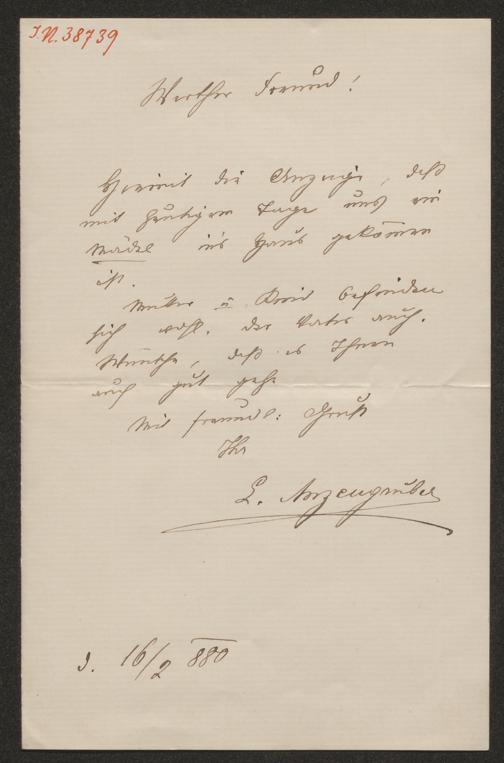 J.N. 38739
Werther Freund!
Hiermit die Anzeige, daß
mit heutigem Tage uns ein
Mädel in's Haus gekommen
ist.
Mutter u Kind befinden
sich wohl, der Vater auch.
Wünsche, daß es Ihnen
auch gut gehe
Mit freundl: Gruß
Ihr
L. Anzengruber
16/2 880